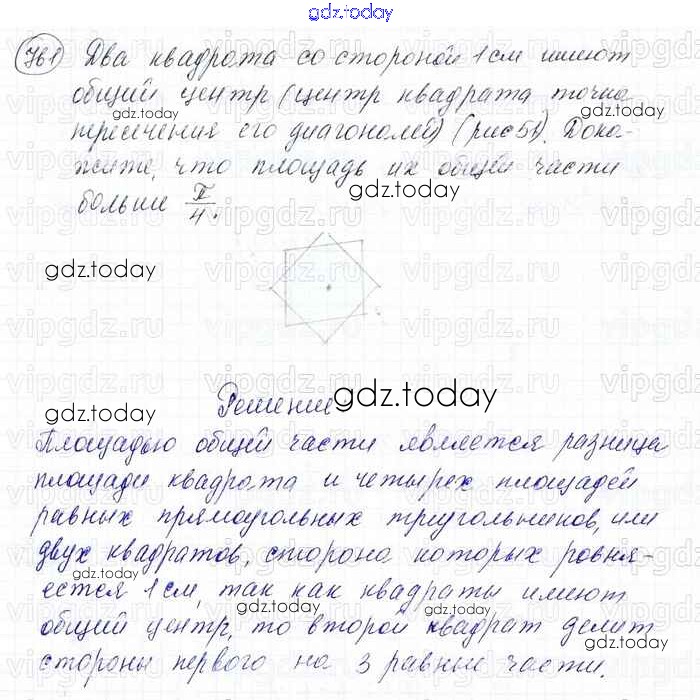 gdz.today
761 Два квадрата со стороной 1 см имеют
общий центр (центр квадрата точка
gdz.today
пересечения его диагоналей) (рис 51). Дока-
жите, что площадь их общей части
gdz.today
больше π/4.
vipgdz.ru
gdz.today
Решение
gdz.today
Площадью общей части является разница
площади квадрата и четырех площадей
равных прямоугольных треугольников, или
двух квадратов, сторона которых ровня-
gdz.today
ется 1 см, так как квадраты имеют
gdz.today
общий центр, то второй квадрат делит
gdz.today
стороны первого на 3 равные части.